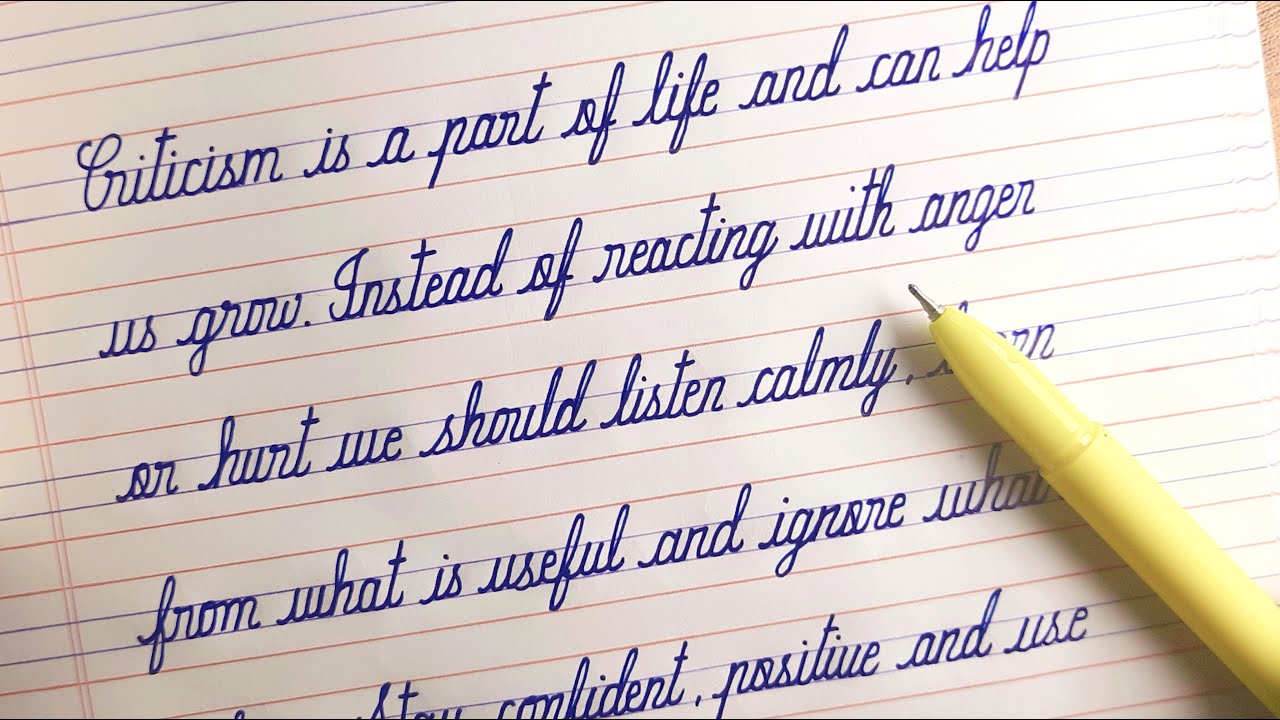 Criticism is a part of life and can help
us grow. Instead of reacting with anger
or hurt we should listen calmly, learn
from what is useful and ignore what
Stay confident, positive and use